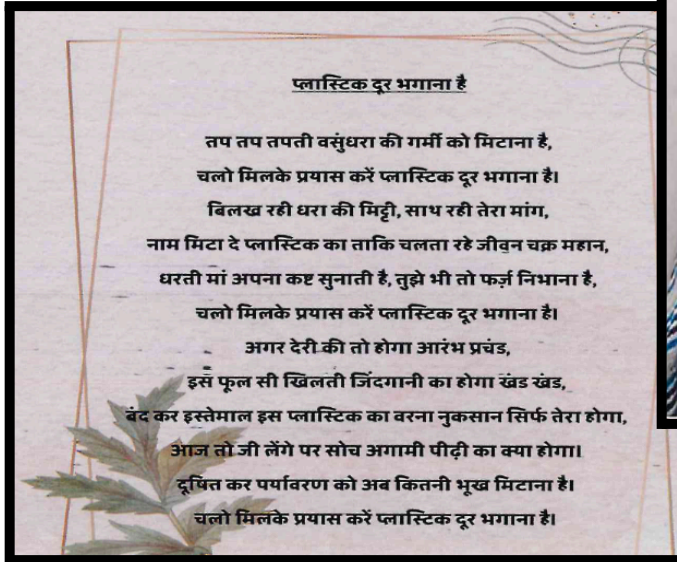 प्लास्टिक दूर भगाना है
तप तप तपती वसुंधरा की गर्मी को मिटाना है,
चलो मिलके प्रयास करें प्लास्टिक दूर भगाना है।
बिलख रही धरा की मिट्टी, साथ रही तेरा मांग,
नाम मिटा दे प्लास्टिक का ताकि चलता रहे जीवन चक्र महान,
धरती मां अपना कष्ट सुनाती है, तुझे भी तो फर्ज़ निभाना है,
चलो मिलके प्रयास करें प्लास्टिक दूर भगाना है।
अगर देरी की तो होगा आरंभ प्रचंड,
इस फूल सी खिलती जिंदगानी का होगा खंड खंड,
बंद कर इस्तेमाल इस प्लास्टिक का वरना नुकसान सिर्फ तेरा होगा,
आज तो जी लेंगे पर सोच अगामी पीढ़ी का क्या होगा।
दूषित कर पर्यावरण को अब कितनी भूख मिटाना है।
चलो मिलके प्रयास करें प्लास्टिक दूर भगाना है।